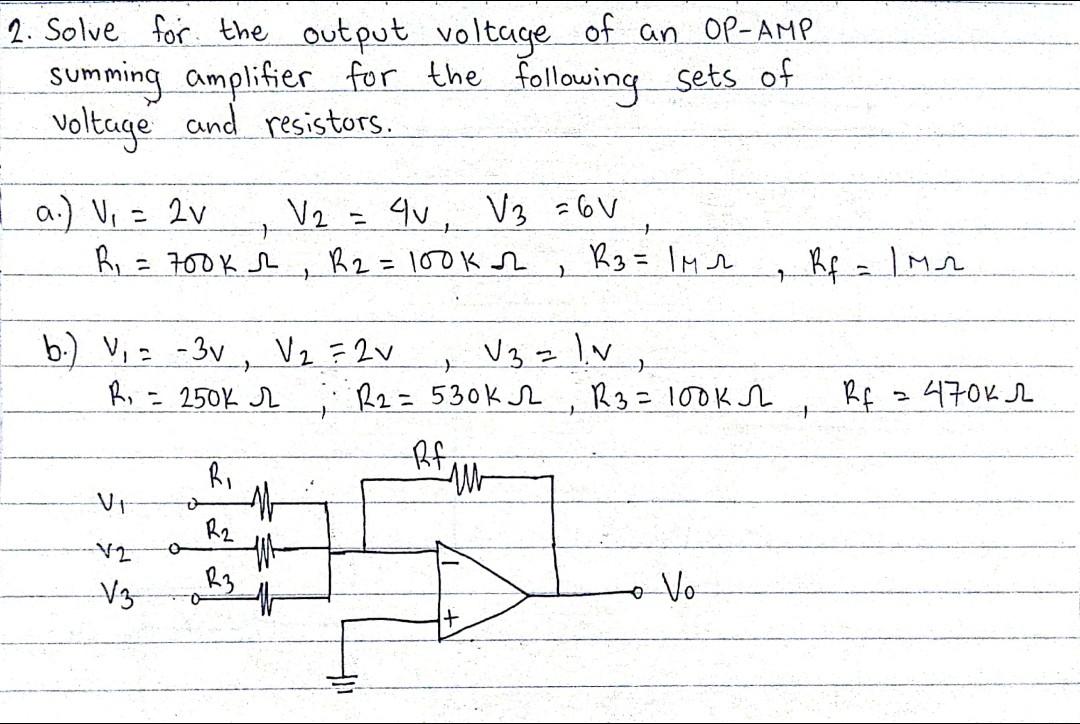 2. Solve for the output voltage of an OP-AMP
summing amplifier for the following sets of
voltage and resistors.
a.) V₁ = 2v , V2 = 4v, V3 = 6V,
R₁ = 700K Ω , R2 = 100K Ω , R3 = 1MΩ , Rf = 1MΩ
b.) V₁ = -3v, V2 = 2v , V3 = 1.v ,
R₁ = 250K Ω ; R2 = 530K Ω , R3 = 100K Ω , Rf = 470K Ω
Rf
R₁
V₁
R2
V2
R3
V3
−
+
Vo